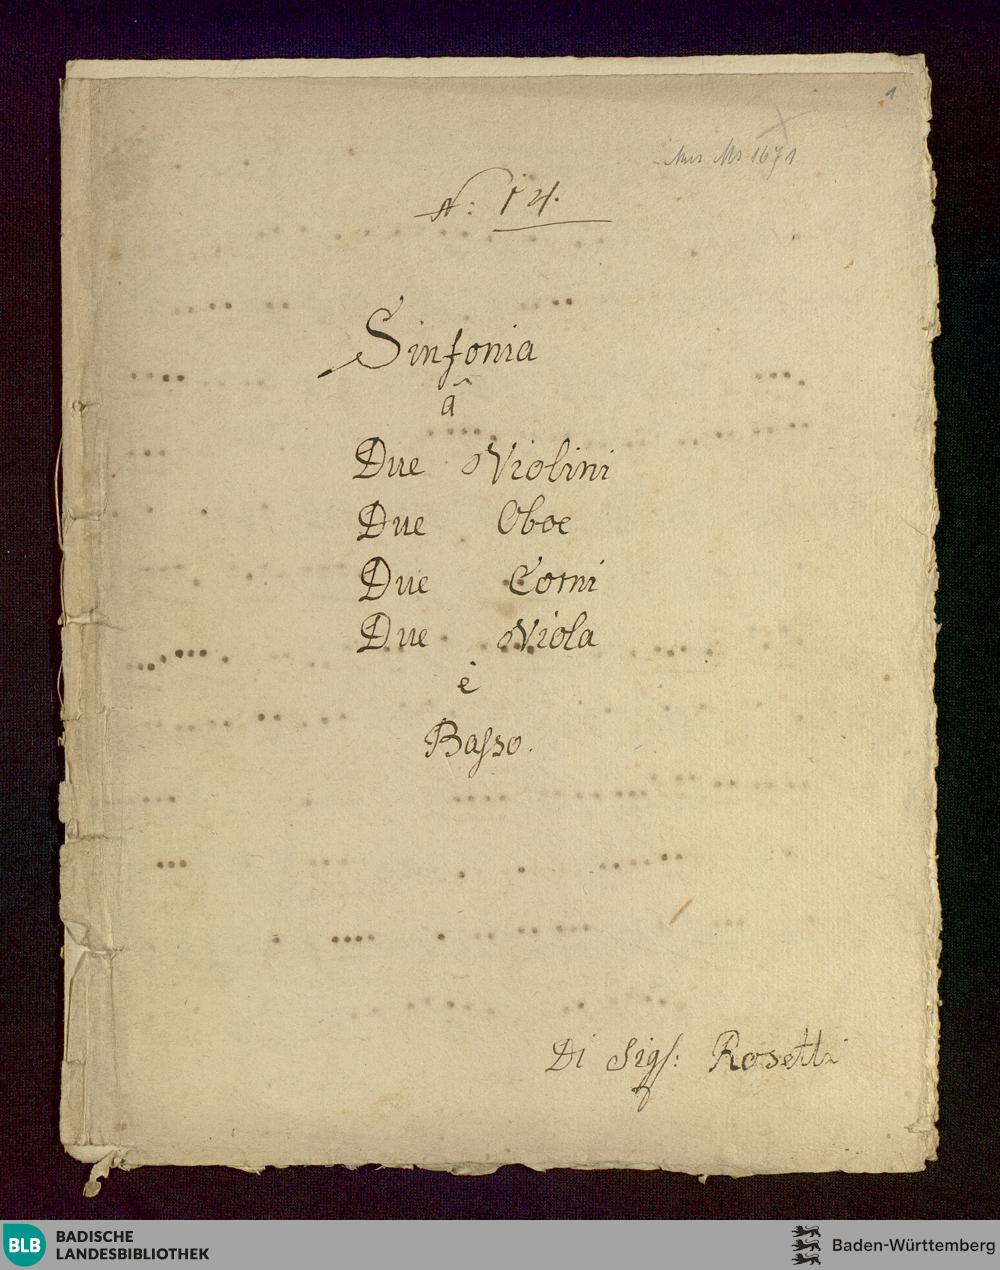 1
Mus Ms 1671
N: 14.
Sinfonia
â
Due Violini
Due Oboe
Due Corni
Due Viola
è
Baſso.
Di Sigſ: Rosetti
BLB BADISCHE LANDESBIBLIOTHEK
Baden-Württemberg